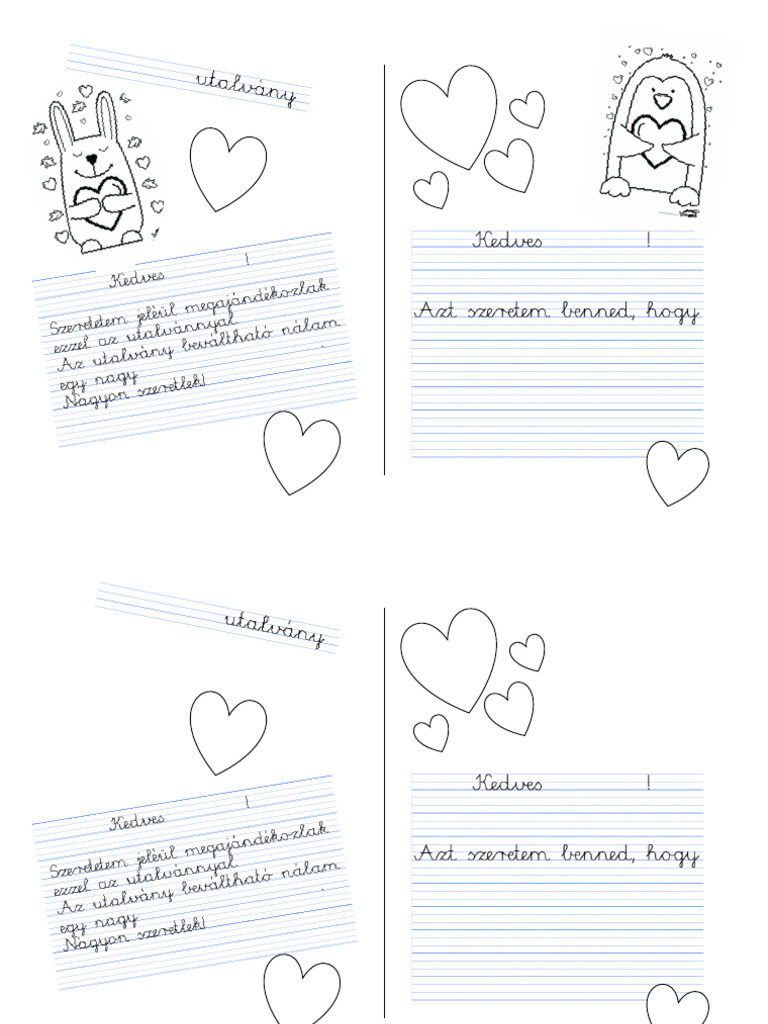 utalvány
Kedves !
Szeretetem jeléül megajándékozlak
ezzel az utalvánnyal.
Az utalvány beváltható nálam
egy nagy .
Nagyon szeretlek!
Kedves !
Azt szeretem benned, hogy
utalvány
Kedves !
Szeretetem jeléül megajándékozlak
ezzel az utalvánnyal.
Az utalvány beváltható nálam
egy nagy .
Nagyon szeretlek!
Kedves !
Azt szeretem benned, hogy